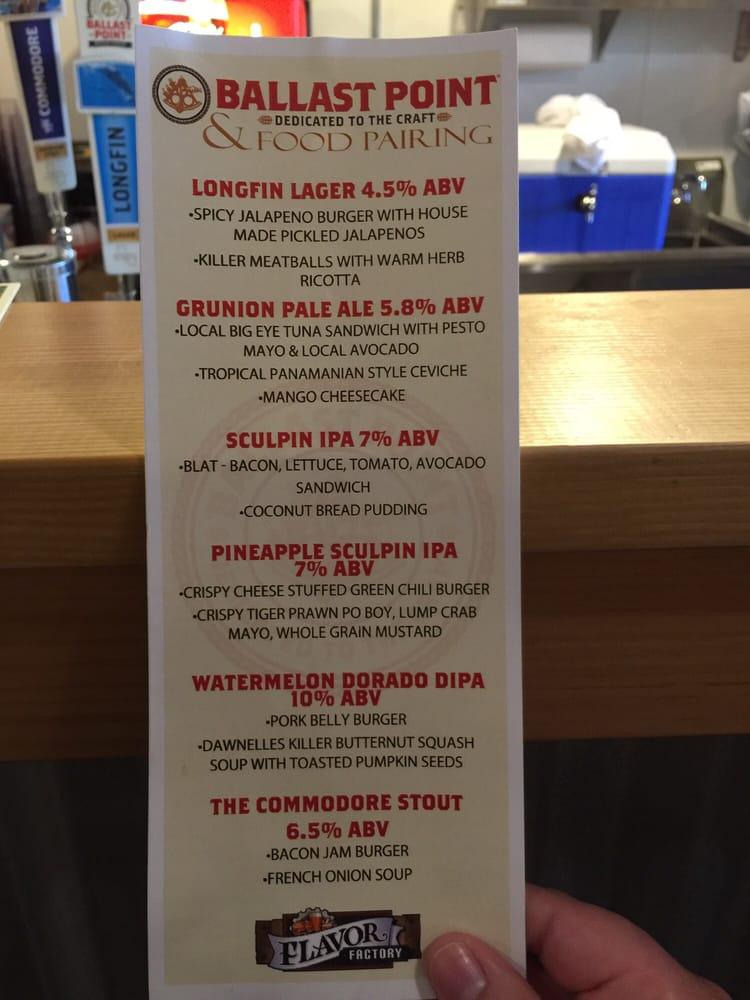 THE COMMODORE
BALLAST
POINT
LONGFIN
LAGER
BALLAST POINT
DEDICATED TO THE CRAFT
& FOOD PAIRING
LONGFIN LAGER 4.5% ABV
•SPICY JALAPENO BURGER WITH HOUSE
MADE PICKLED JALAPENOS
•KILLER MEATBALLS WITH WARM HERB
RICOTTA
GRUNION PALE ALE 5.8% ABV
•LOCAL BIG EYE TUNA SANDWICH WITH PESTO
MAYO & LOCAL AVOCADO
•TROPICAL PANAMANIAN STYLE CEVICHE
•MANGO CHEESECAKE
SCULPIN IPA 7% ABV
•BLAT - BACON, LETTUCE, TOMATO, AVOCADO
SANDWICH
•COCONUT BREAD PUDDING
PINEAPPLE SCULPIN IPA
7% ABV
•CRISPY CHEESE STUFFED GREEN CHILI BURGER
•CRISPY TIGER PRAWN PO BOY, LUMP CRAB
MAYO, WHOLE GRAIN MUSTARD
WATERMELON DORADO DIPA
10% ABV
•PORK BELLY BURGER
•DAWNELLES KILLER BUTTERNUT SQUASH
SOUP WITH TOASTED PUMPKIN SEEDS
THE COMMODORE STOUT
6.5% ABV
•BACON JAM BURGER
•FRENCH ONION SOUP
FLAVOR
FACTORY